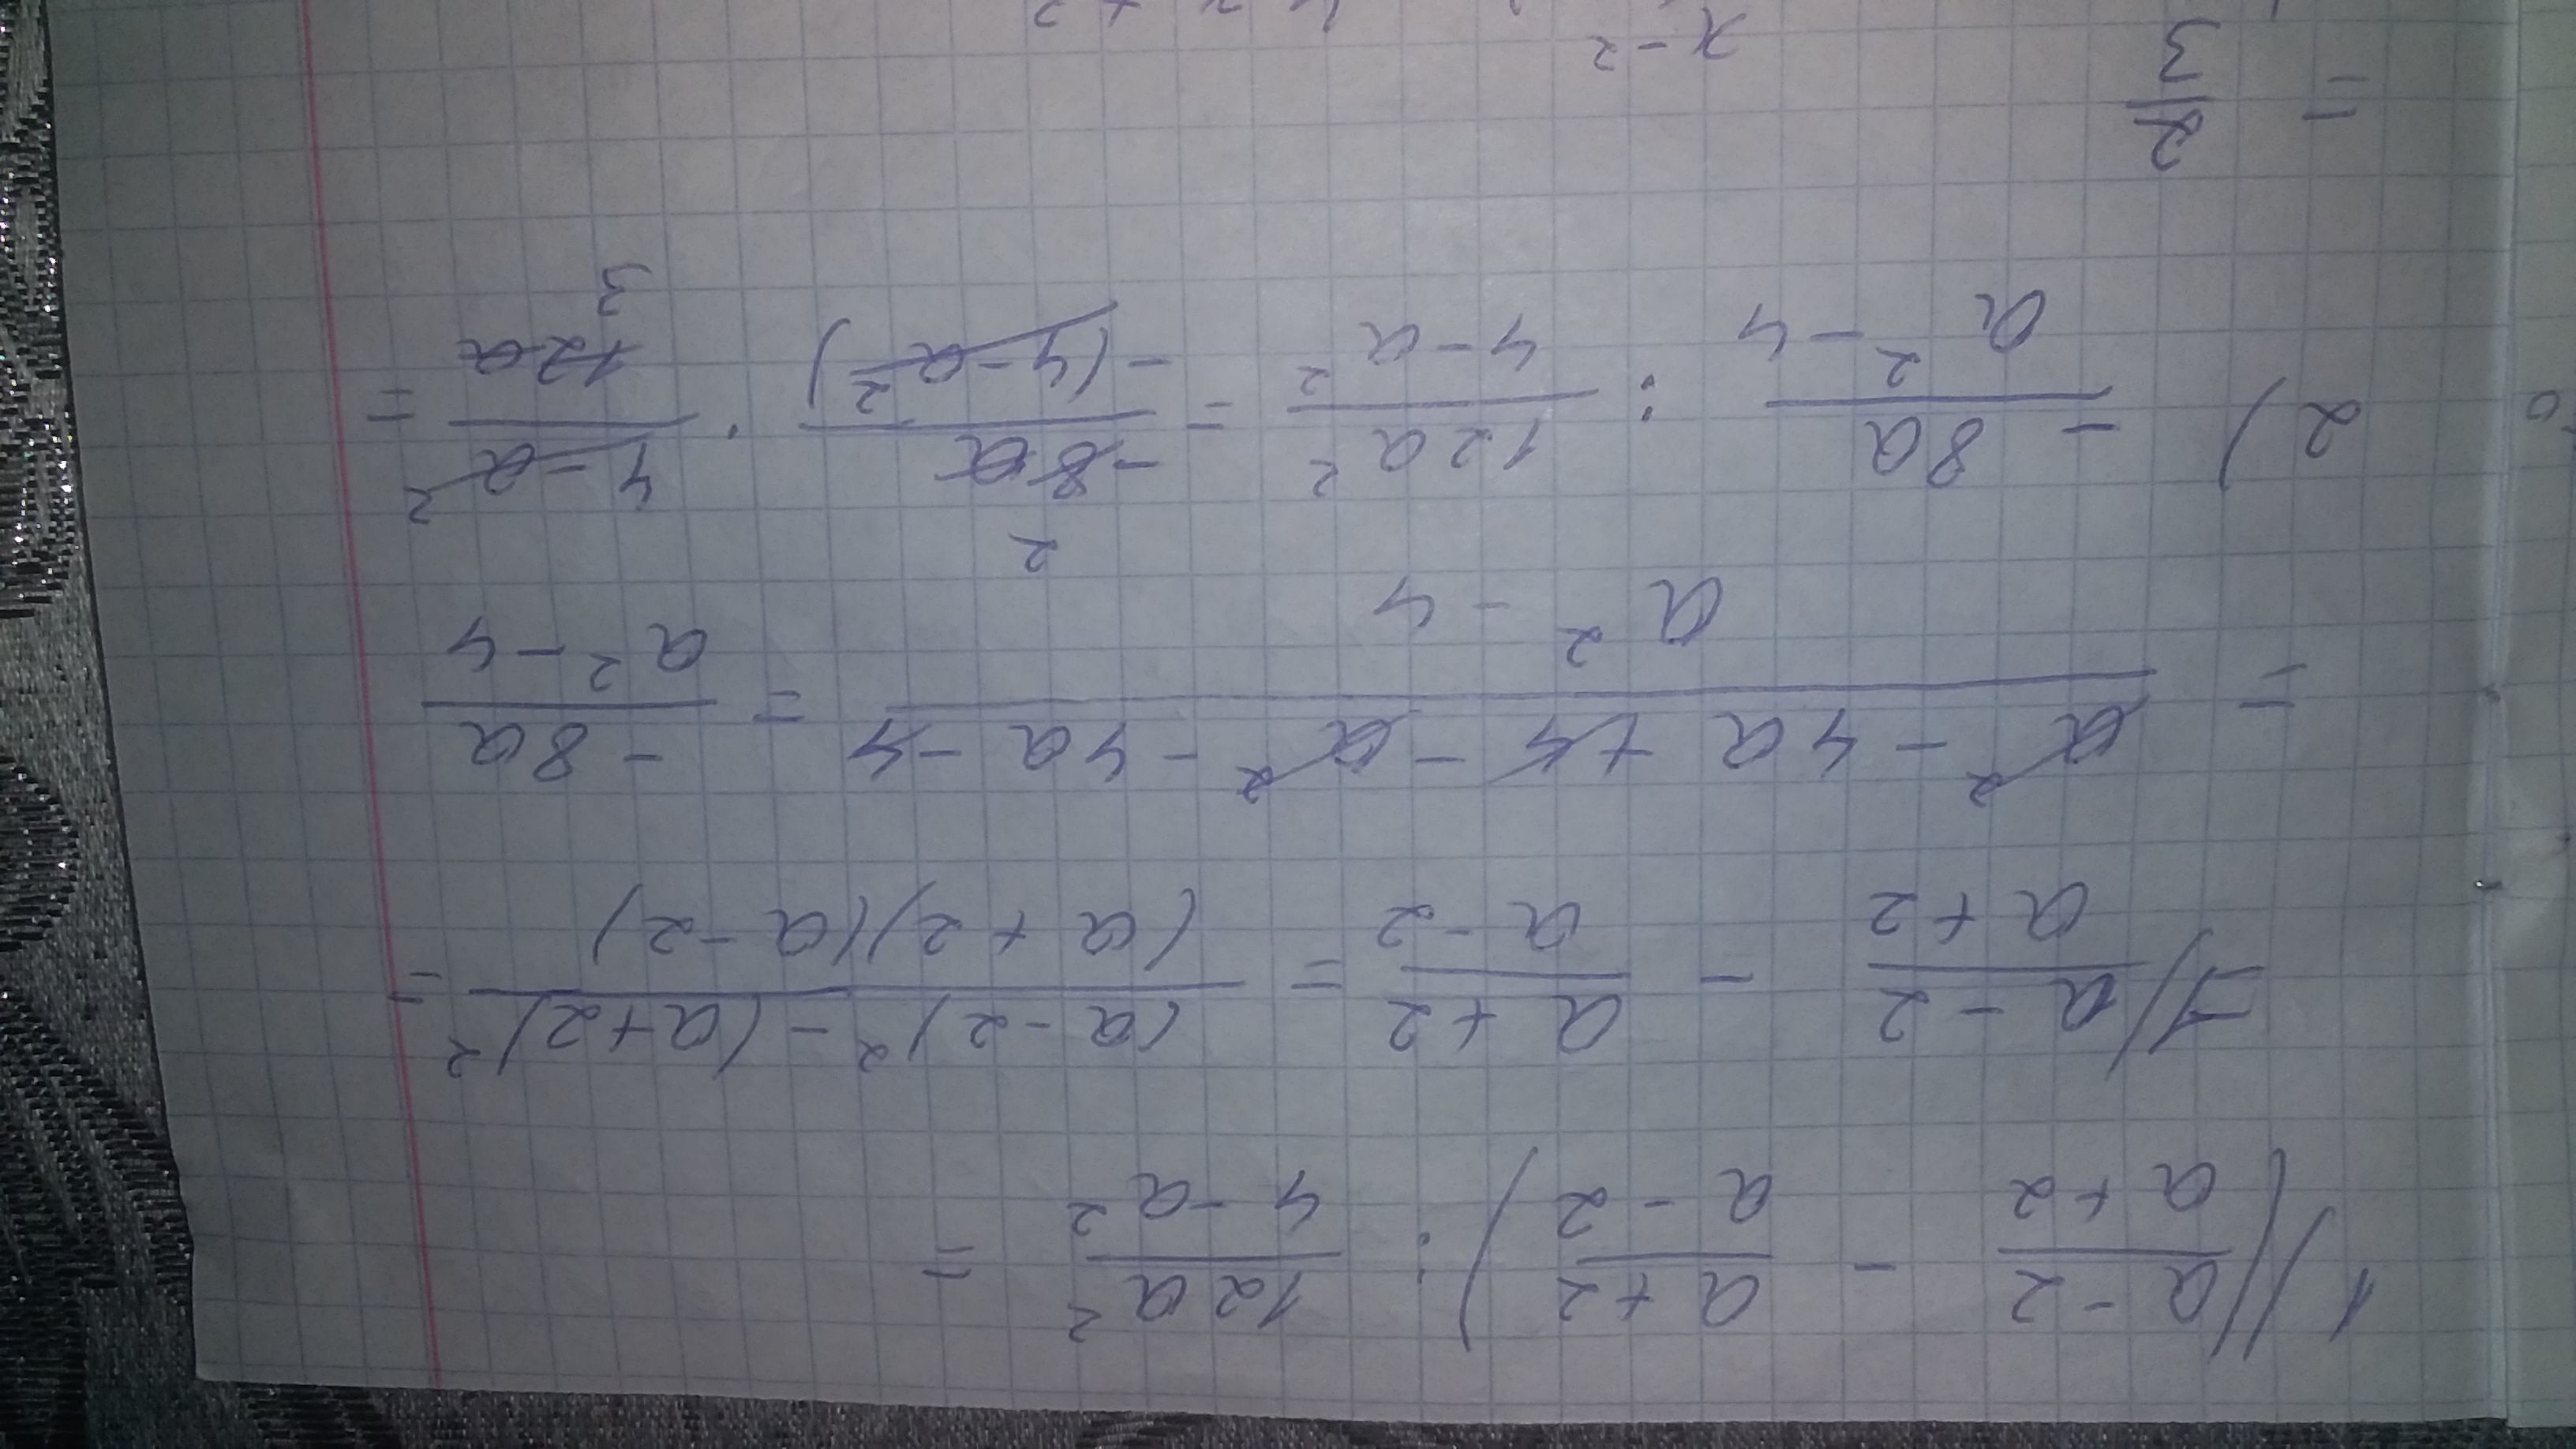 1) ( (a-2)/(a+2) - (a+2)/(a-2) ) : 12a²/(4-a²) =
1) (a-2)/(a+2) - (a+2)/(a-2) = ((a-2)²-(a+2)²)/((a+2)(a-2)) =
= (a²-4a+4-a²-4a-4)/(a²-4) = -8a/(a²-4)
2) -8a/(a²-4) : 12a²/(4-a²) = -8a/-(4-a²) · (4-a²)/12a =
2
3
= 2/3
x-2